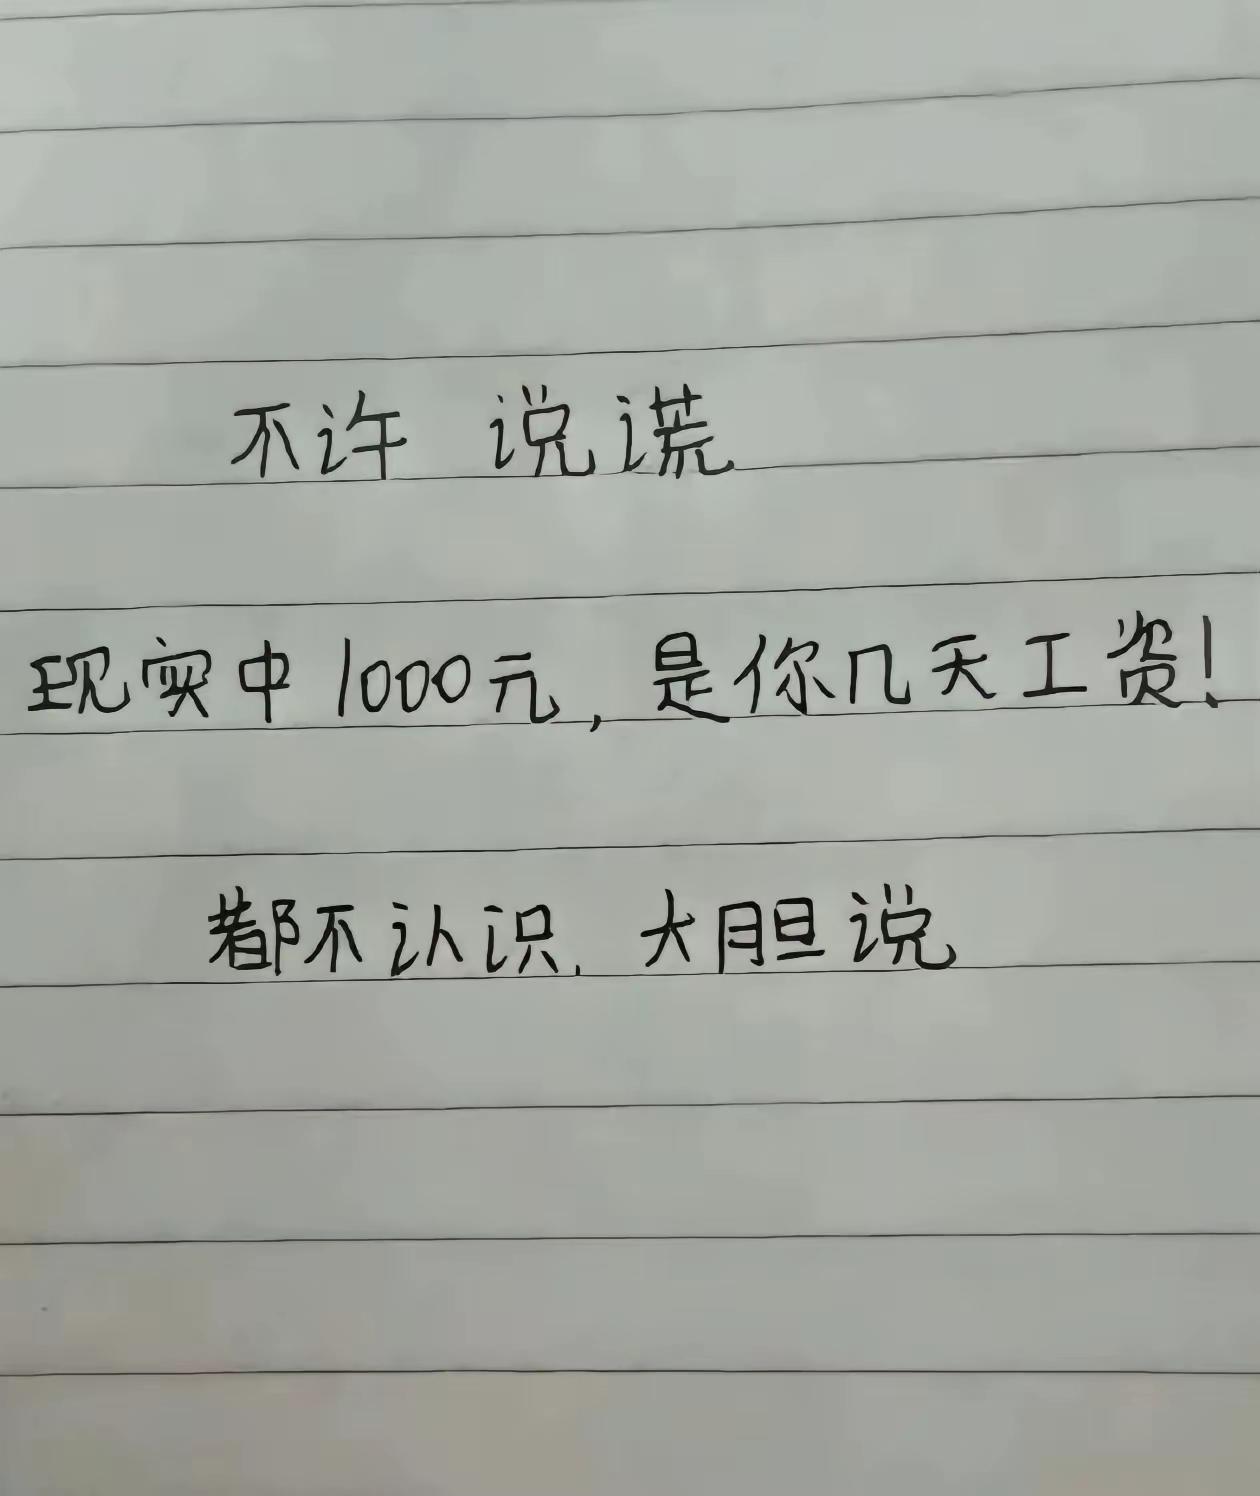 不许 说谎
现实中1000元,是你几天工资!
都不认识,大胆说